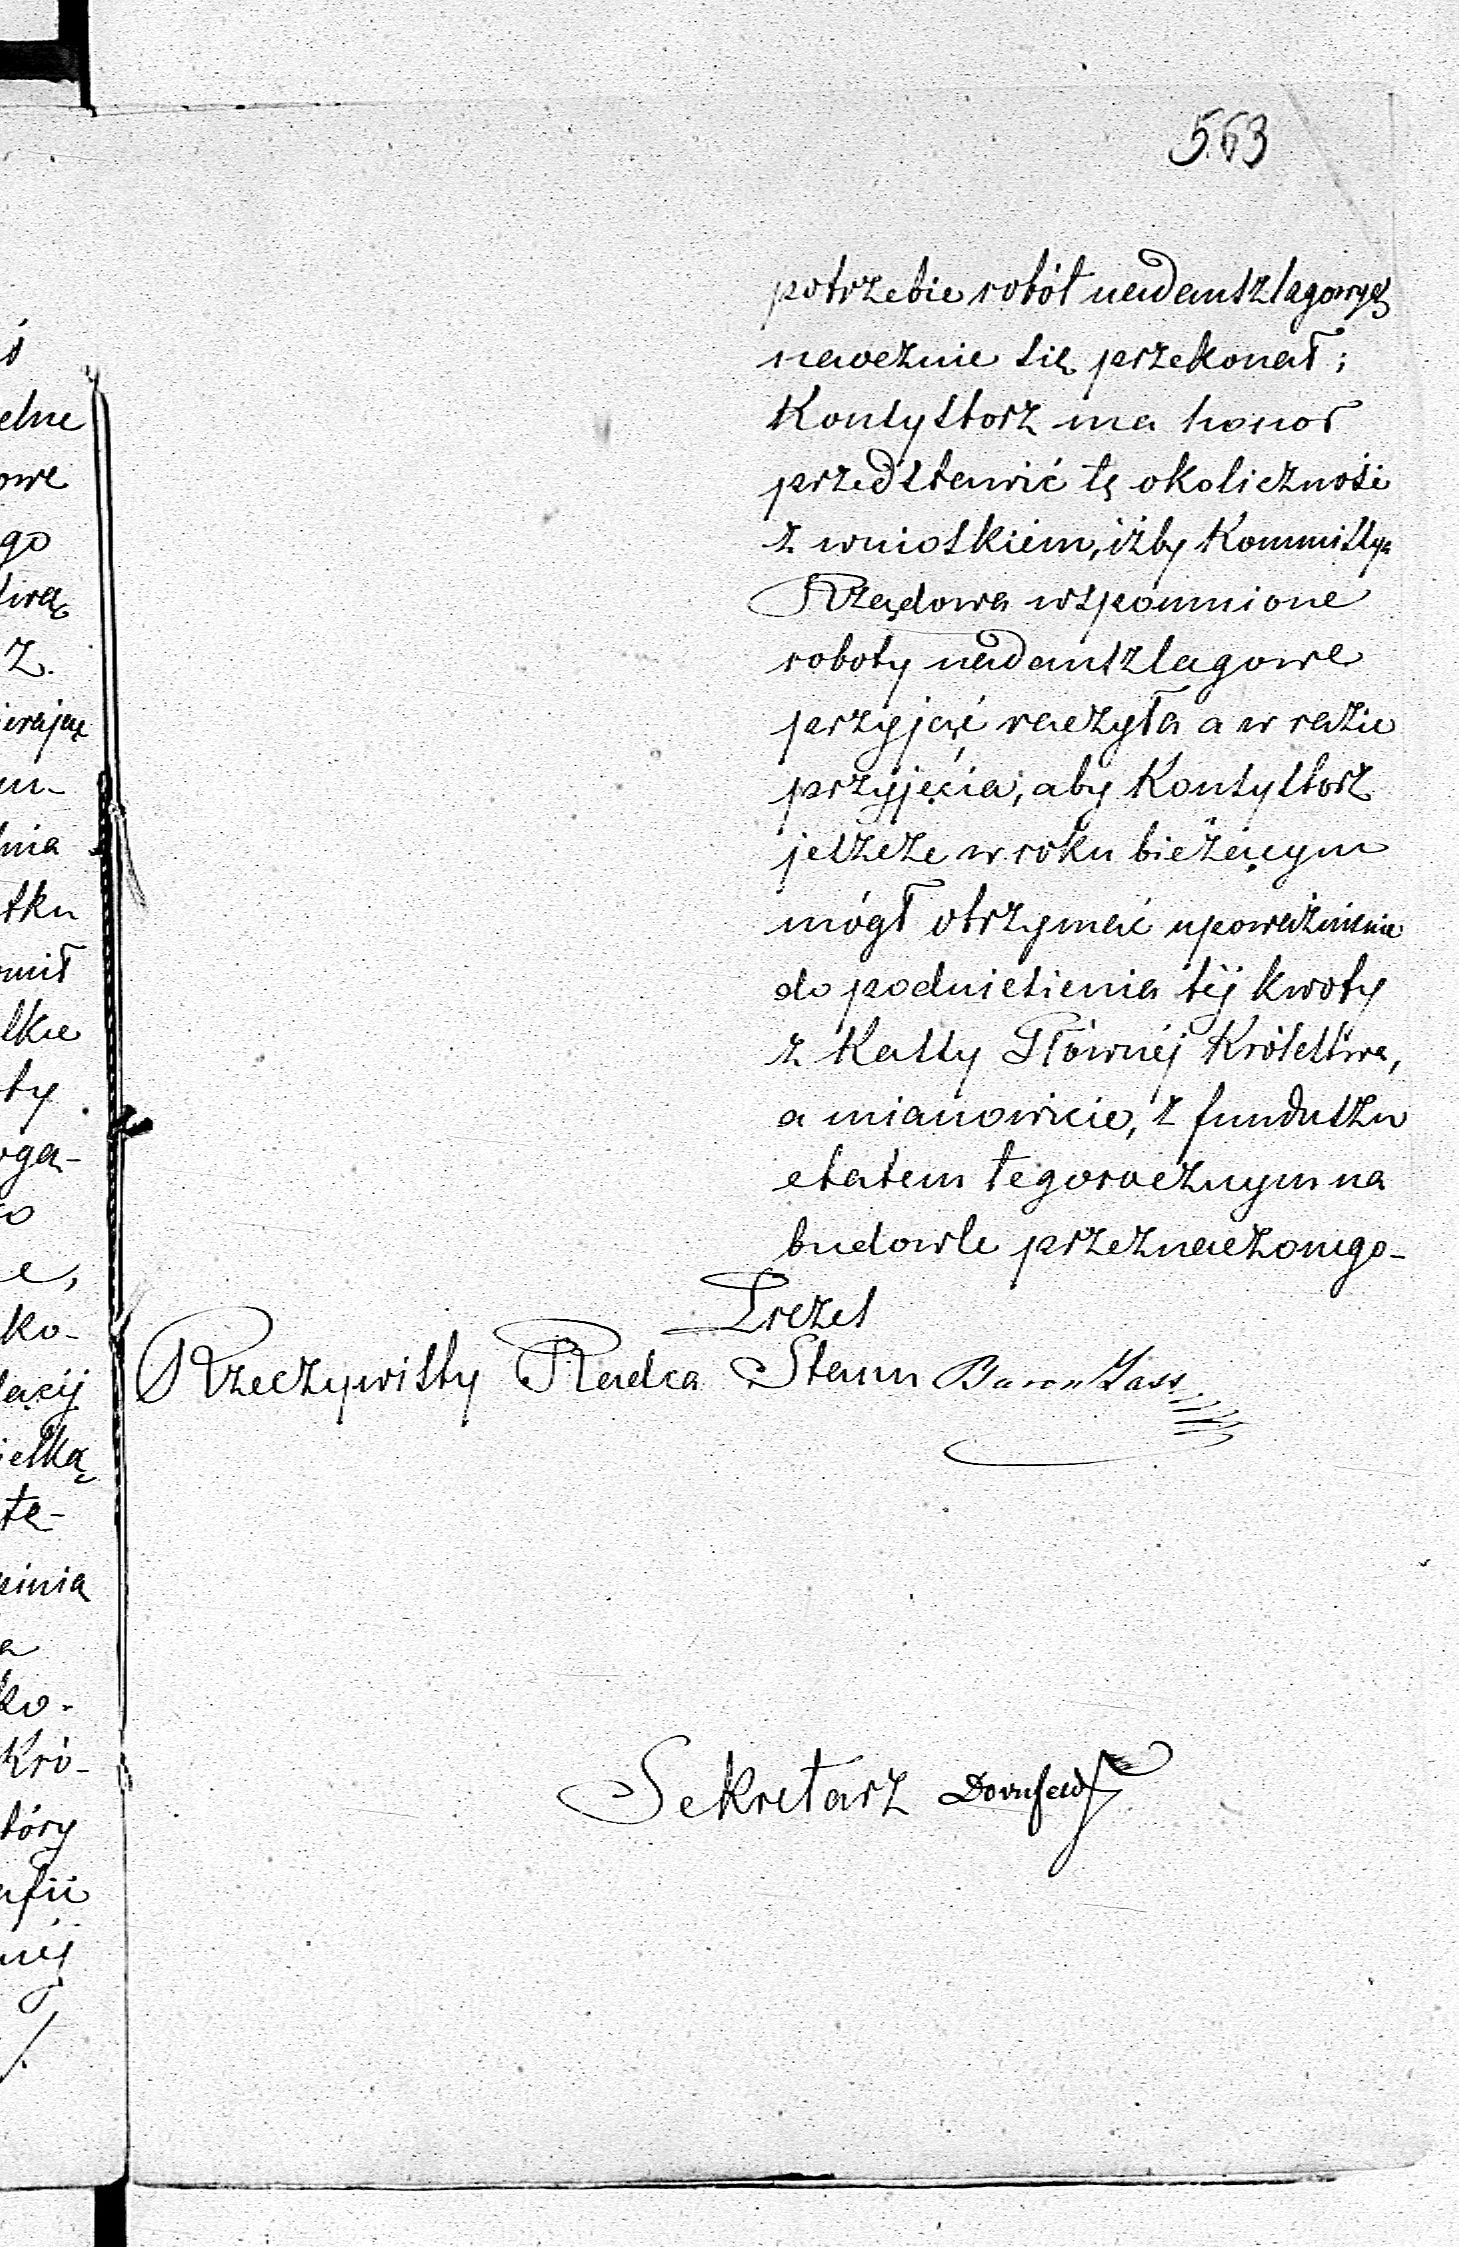 563
potrzebie robót nadanszlagowych
naocznie się przekonał;
Konsystorz ma honor
przedstawić tę okoliczność
z wnioskiem, iżby Kommissya
Rządowa wspomnione
roboty nadanszlagowe
przyjąć raczyła a w razie
przyjęcia, aby Konsystorz
jeszcze w roku bieżącym
mógł otrzymać upoważnienie
do podniesienia téj kwoty
z Kassy Głównéj Królestwa,
a mianowicie, z funduszu
etatem tegorocznym na
budowle przeznaczonego-
Prezes
Rzeczywisty Radca Stanu Baron
Sekretarz Dornfeld
elne
owe
go
Z.
nia
tku
omił
lkie
ty
ko-
ielką
tę-
ko-
Kró-
tóry
afii
néj